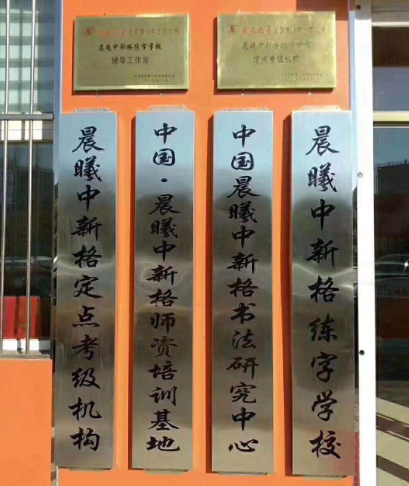 晨曦中新格练字学校
辅导工作站
定点考级机构
晨曦中新格定点考级机构
中国·晨曦中新格师资培训基地
中国晨曦中新格书法研究中心
晨曦中新格练字学校